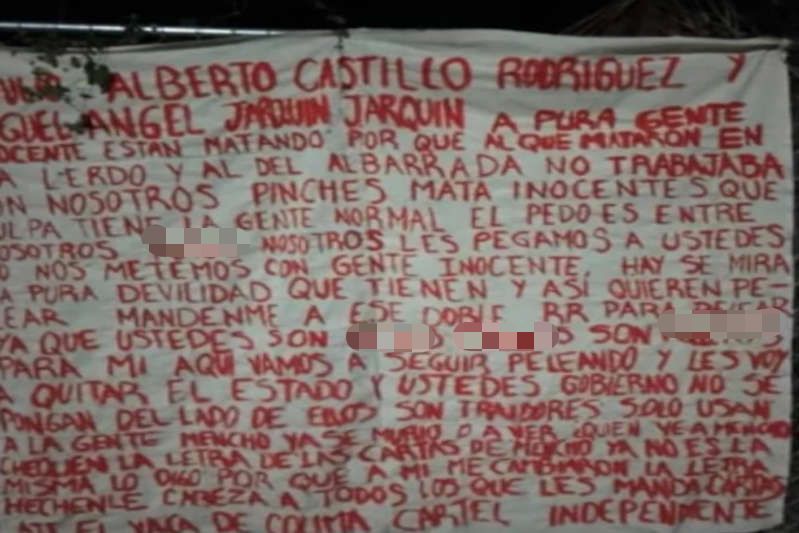 ALBERTO CASTILLO RODRIGUEZ Y
GUEL ANGEL JARQUIN JARQUIN A PURA GENTE
OCENTE ESTAN MATANDO POR QUE AL QUE MATARON EN
A LERDO Y AL DEL ALBARRADA NO TRABAJABA
ON NOSOTROS PINCHES MATA INOCENTES QUE
ULPA TIENE LA GENTE NORMAL EL PEDO ES ENTRE
OSOTROS NOSOTROS LES PEGAMOS A USTEDES
O NOS METEMOS CON GENTE INOCENTE, HAY SE MIRA
A PURA DEVILIDAD QUE TIENEN Y ASÍ QUIEREN PE-
LEAR MANDENME A ESE DOBLE RR PARA
YA QUE USTEDES SON SON
PARA MI AQUI VAMOS A SEGUIR PELEANDO Y LES VOY
A QUITAR EL ESTADO Y USTEDES GOBIERNO NO SE
PONGAN DEL LADO DE ELLOS SON TRAIDORES SOLO USAN
A LA GENTE MENCHO YA SE MURIO O A VER QUIEN VE A MENCHO
CHEQUEN LA LETRA DE LAS CARTAS DE MENCHO YA NO ES LA
MISMA LO DIGO POR QUE A MI ME CAMBIARON LA LETRA
HECHENLE CABEZA A TODOS LOS QUE LES MANDA CARTAS
DE COLIMA CARTEL INDEPENDIENTE